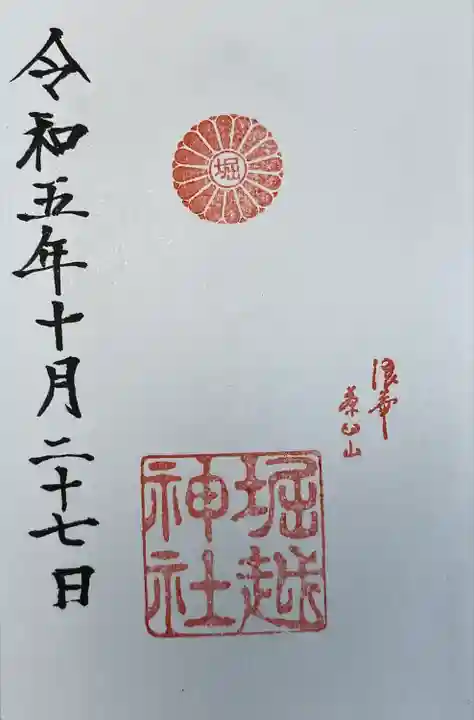 堀
浪華
茶臼山
堀越
神社
令和五年十月二十七日